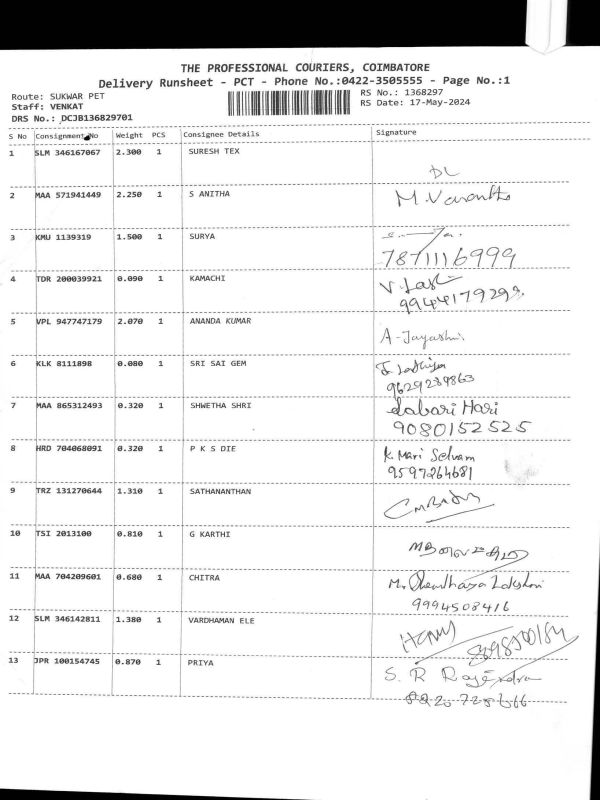 THE PROFESSIONAL COURIERS, COIMBATORE
Delivery Runsheet - PCT - Phone No.:0422-3505555 - Page No.:1
Route: SUKWAR PET
RS No.: 1368297
Staff: VENKAT
RS Date: 17-May-2024
DRS No.: DCJB136829701
S No Consignment No Weight PCS Consignee Details Signature
1 SLM 346167067 2.300 1 SURESH TEX
DL
2 MAA 571941449 2.250 1 S ANITHA
M.
3 KMU 1139319 1.500 1 SURYA
7871116999
4 TDR 200039921 0.090 1 KAMACHI
V.
9944179293
5 VPL 947747179 2.070 1 ANANDA KUMAR
A-Jayashri
6 KLK 8111898 0.080 1 SRI SAI GEM
9629289863
7 MAA 865312493 0.320 1 SHWETHA SHRI
Sabari Hari
9080152525
8 HRD 704068091 0.320 1 P K S DIE
K. Mari Selvam
9597264681
9 TRZ 131270644 1.310 1 SATHANANTHAN
10 TSI 2013100 0.810 1 G KARTHI
11 MAA 704209601 0.680 1 CHITRA
9994508416
12 SLM 346142811 1.380 1 VARDHAMAN ELE
13 JPR 100154745 0.870 1 PRIYA
S. R Rajendra